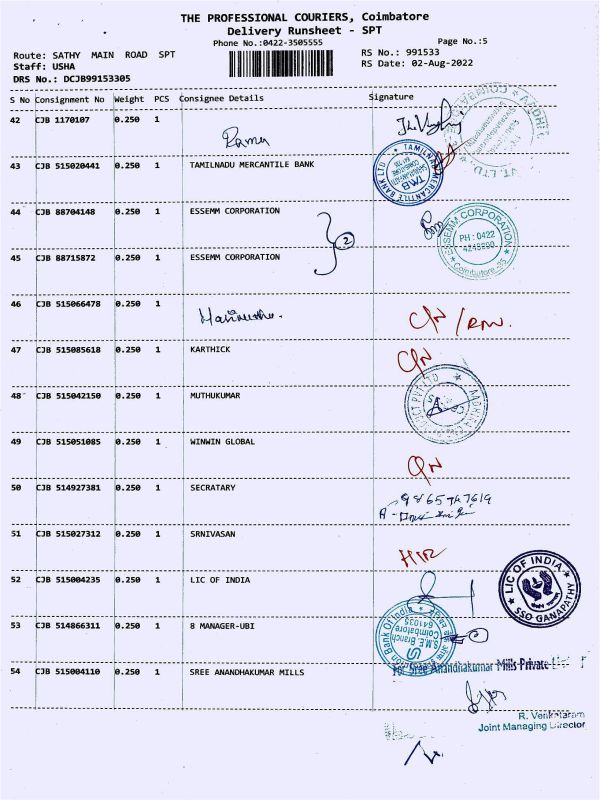 THE PROFESSIONAL COURIERS, Coimbatore
Delivery Runsheet - SPT
Phone No.:0422-3505555 Page No.:5
Route: SATHY MAIN ROAD SPT RS No.: 991533
Staff: USHA RS Date: 02-Aug-2022
DRS No.: DCJB99153305
S No Consignment No Weight PCS Consignee Details Signature
42 CJB 1170107 0.250 1
43 CJB 515020441 0.250 1 TAMILNADU MERCANTILE BANK
TAMILNAD MERCANTILE BANK LTD
TMB
44 CJB 88704148 0.250 1 ESSEMM CORPORATION
2
ESSEMM CORPORATION
PH : 0422
Coimbatore
45 CJB 88715872 0.250 1 ESSEMM CORPORATION
46 CJB 515066478 0.250 1
47 CJB 515085618 0.250 1 KARTHICK
48 CJB 515042150 0.250 1 MUTHUKUMAR
49 CJB 515051085 0.250 1 WINWIN GLOBAL
50 CJB 514927381 0.250 1 SECRATARY
51 CJB 515027312 0.250 1 SRNIVASAN
52 CJB 515004235 0.250 1 LIC OF INDIA
LIC OF INDIA
SSO GANAPATHY
53 CJB 514866311 0.250 1 8 MANAGER-UBI
Union Bank Of India
S.M.E. Branch
Coimbatore
641035
54 CJB 515004110 0.250 1 SREE ANANDHAKUMAR MILLS
For Sree Anandhakumar Mills Private
R. Venkataram
Joint Managing Director